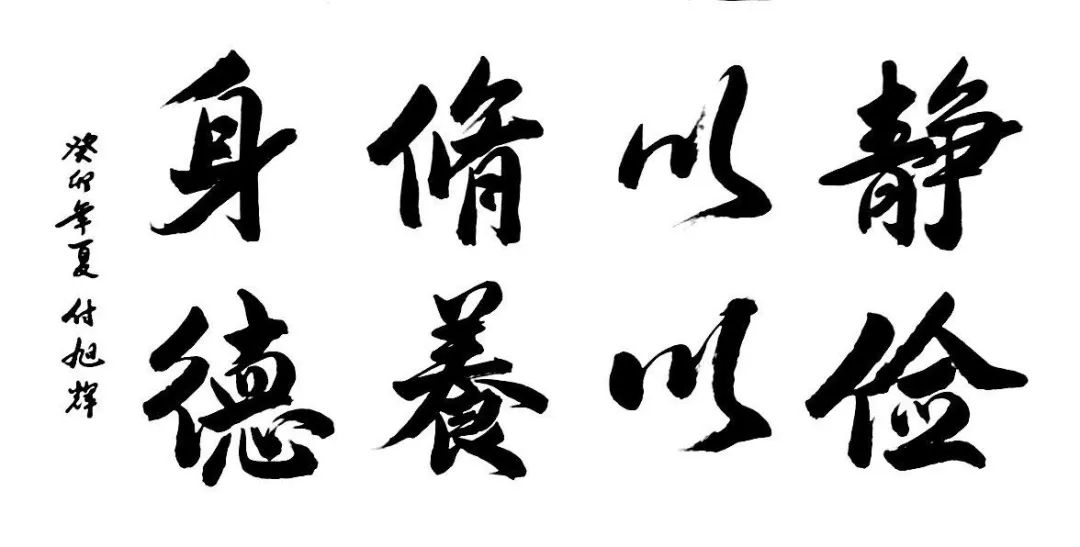 静以脩身
俭以養德
癸卯年夏 付旭辉